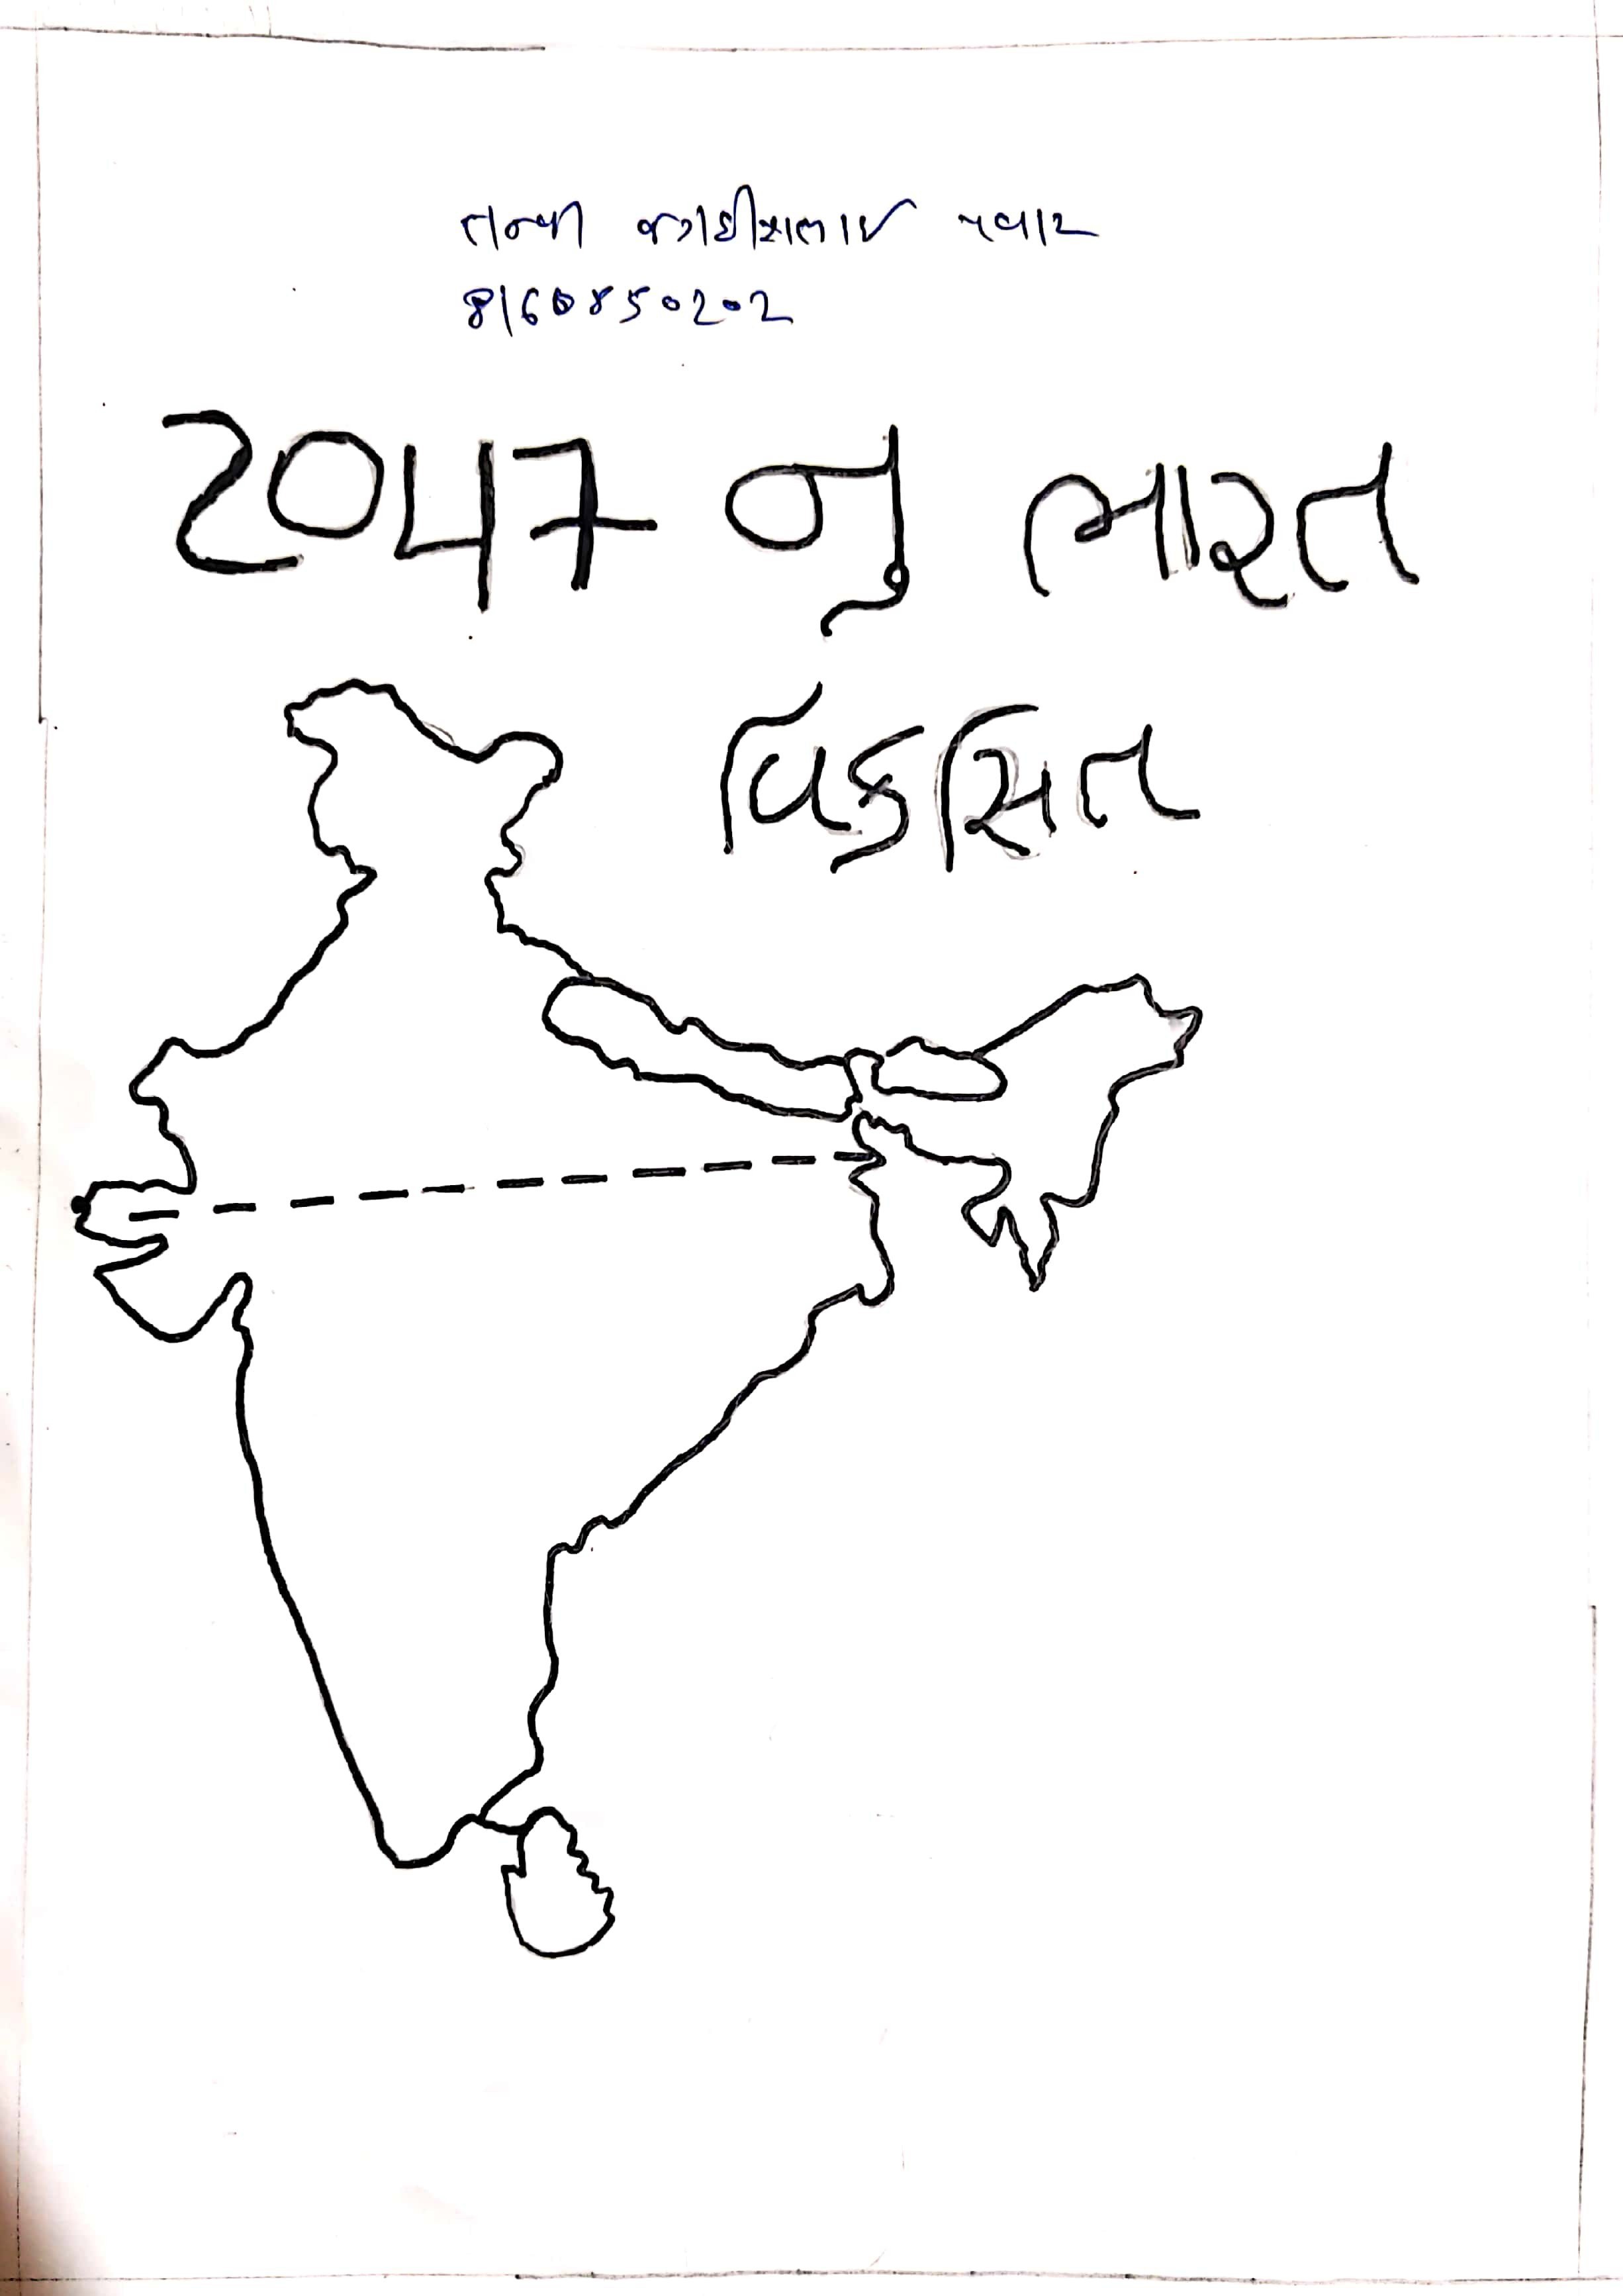 તન્વી જગદીશભાઈ પવાર
8160850202
2047 નુ ભારત
વિકસિત